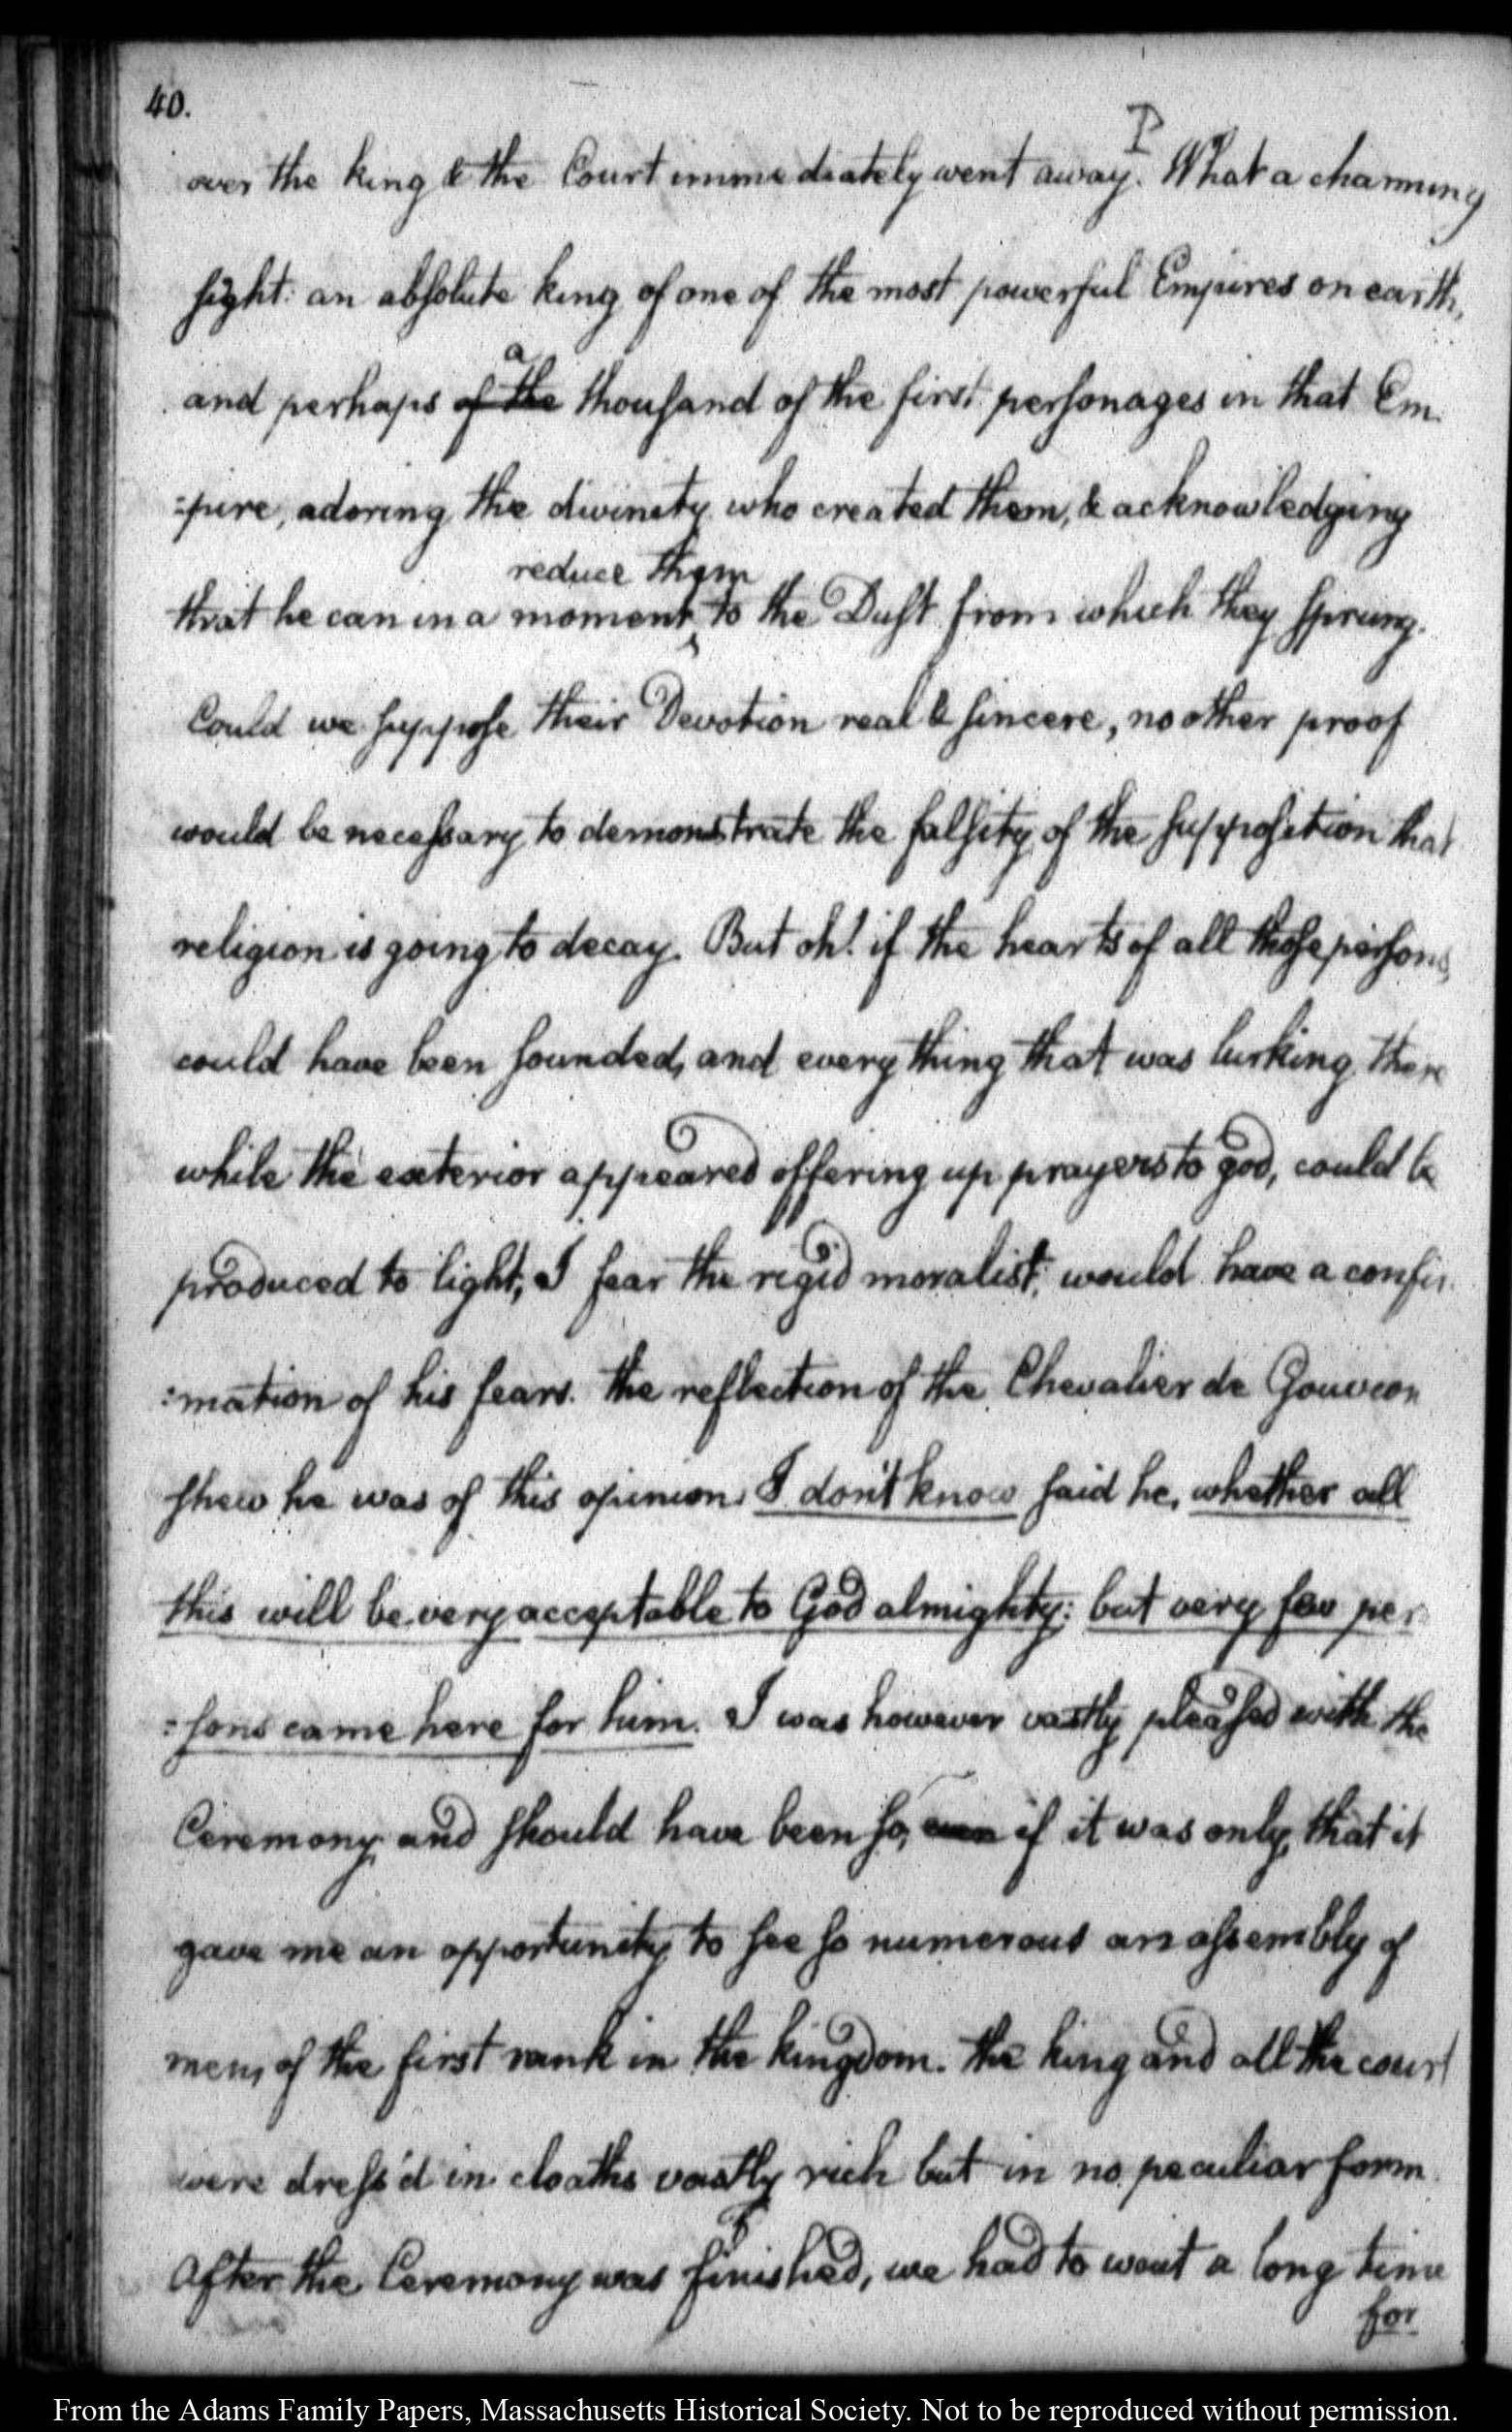 40.
P
over the king & the Court immediately went away. What a charming
sight: an absolute king of one of the most powerful Empires on earth,
a
and perhaps of the thousand of the first personages in that Em-
=pire, adoring the divinity who created them, & acknowledging
reduce them
that he can in a moment ‸ to the Dust from which they sprung.
Could we suppose their Devotion real & sincere, no other proof
would be necessary to demonstrate the falsity of the supposition that
religion is going to decay. But oh! if the hearts of all those persons,
could have been sounded, and every thing that was lurking there
while the exterior appeared offering up prayers to god, could be
produced to light, I fear the rigid moralist, would have a confir-
:mation of his fears. the reflection of the Chevalier de Gouvion
shew he was of this opinion. I don't know said he, whether all
this will be very acceptable to God almighty: but very few per
:sons came here for him. I was however vastly pleased with the
Ceremony, and should have been so, even if it was only, that it
gave me an opportunity to see so numerous an assembly of
men, of the first rank in the kingdom. the king and all the court
were dress'd in cloaths vastly rich but in no peculiar form.
After the Ceremony was finished, we had to wait a long time
for
From the Adams Family Papers, Massachusetts Historical Society. Not to be reproduced without permission.